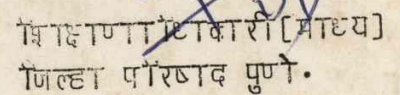 शिक्षाणााधिाकारी[माध्य]
जिल्हा परिषाद पुणे.